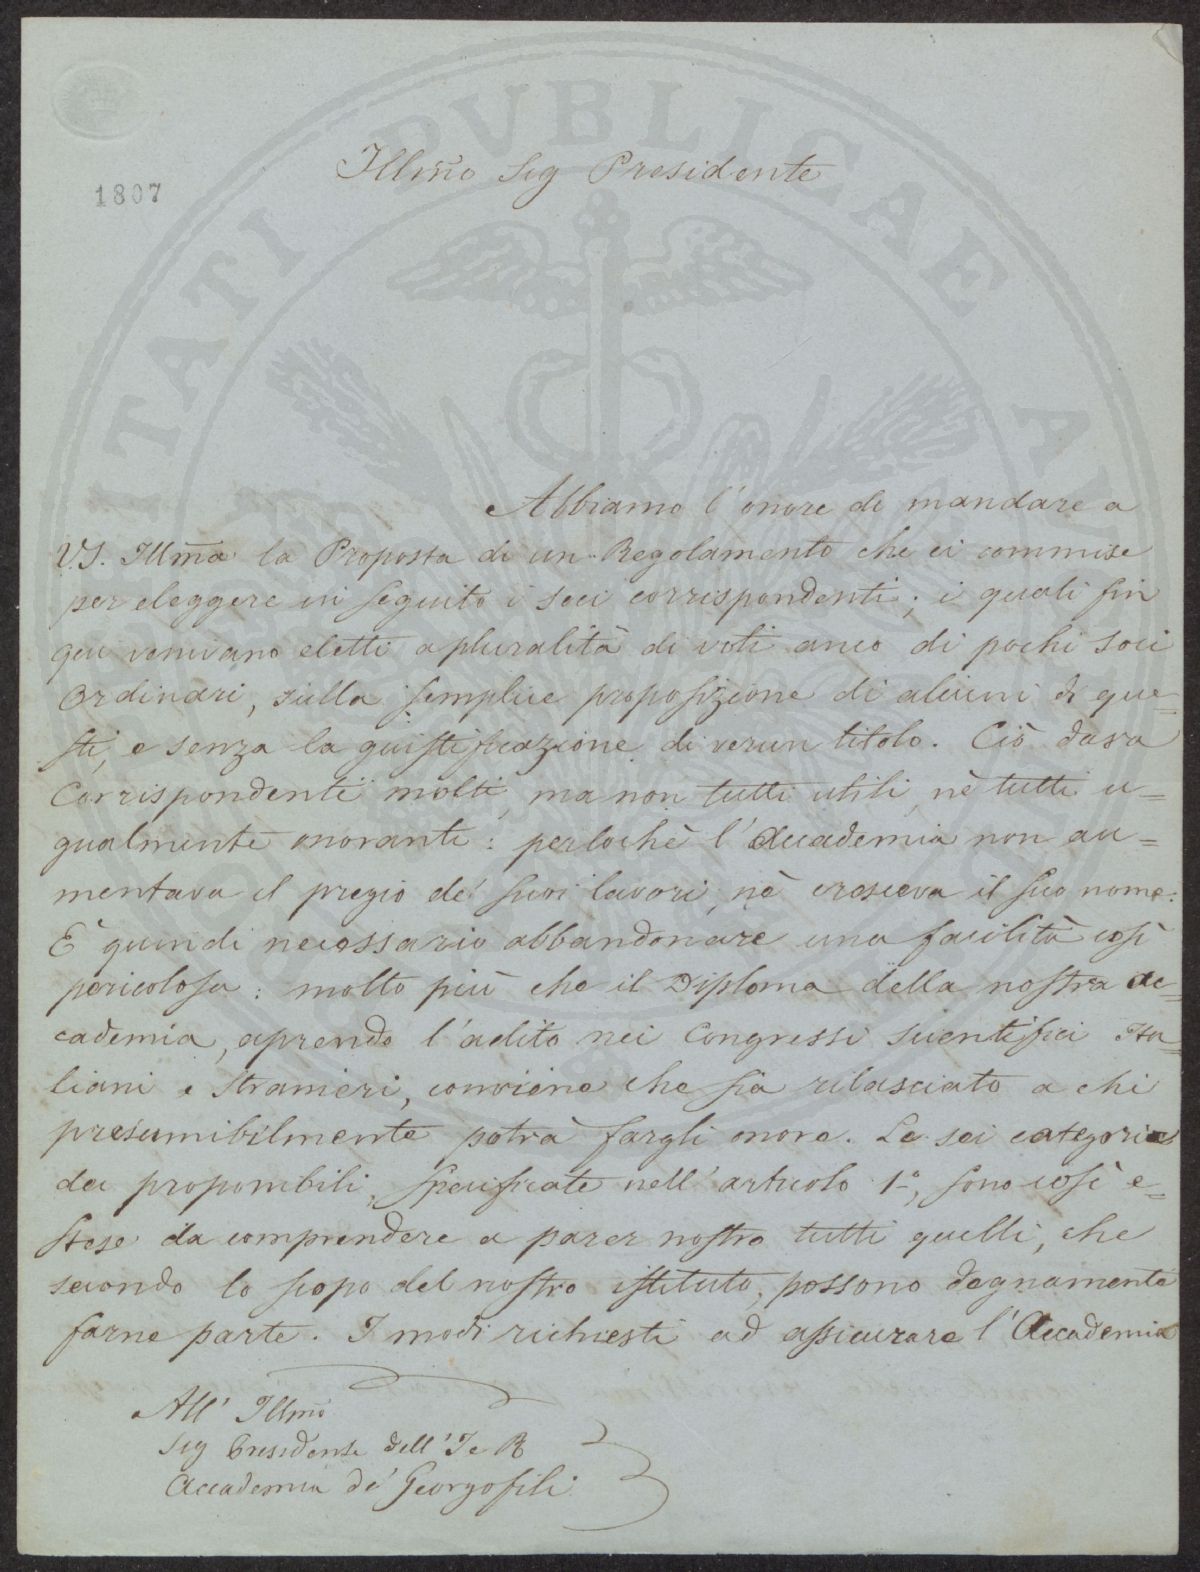 PROSPERITATI PVBLICAE AVGENDAE
1807
Illmo Sig Presidente
Abbiamo l'onore di mandare a
V.S. Illma la Proposta di un Regolamento che ci commise
per eleggere in seguito i soci corrispondenti; i quali fin
qui venivano eletti a pluralità di voti anco di pochi soci
Ordinari, sulla semplice proposizione di alcuni di que=
sti, e senza la giustificazione di verun titolo. Ciò dava
Corrispondenti molti, ma non tutti utili, nè tutti u=
gualmente onoranti: perlochè l'Accademia non au=
mentava il pregio de' suoi lavori, nè cresceva il suo nome.
È quindi necessario abbandonare una facilità così
pericolosa: molto più che il Diploma della nostra Ac=
cademia, aprendo l'adito nei Congressi Scientifici Ita=
liani e Stranieri, conviene che sia rilasciato a chi
presumibilmente potrà fargli onore. Le sei categorie
dei proponibili, specificate nell'articolo 1°, sono così e=
stese da comprendere a parer nostro tutti quelli, che
secondo lo scopo del nostro istituto, possono degnamente
farne parte. I modi richiesti ad assicurare l'Accademia
All' Illmo
Sig Presidente dell'I e R
Accademia de' Georgofili